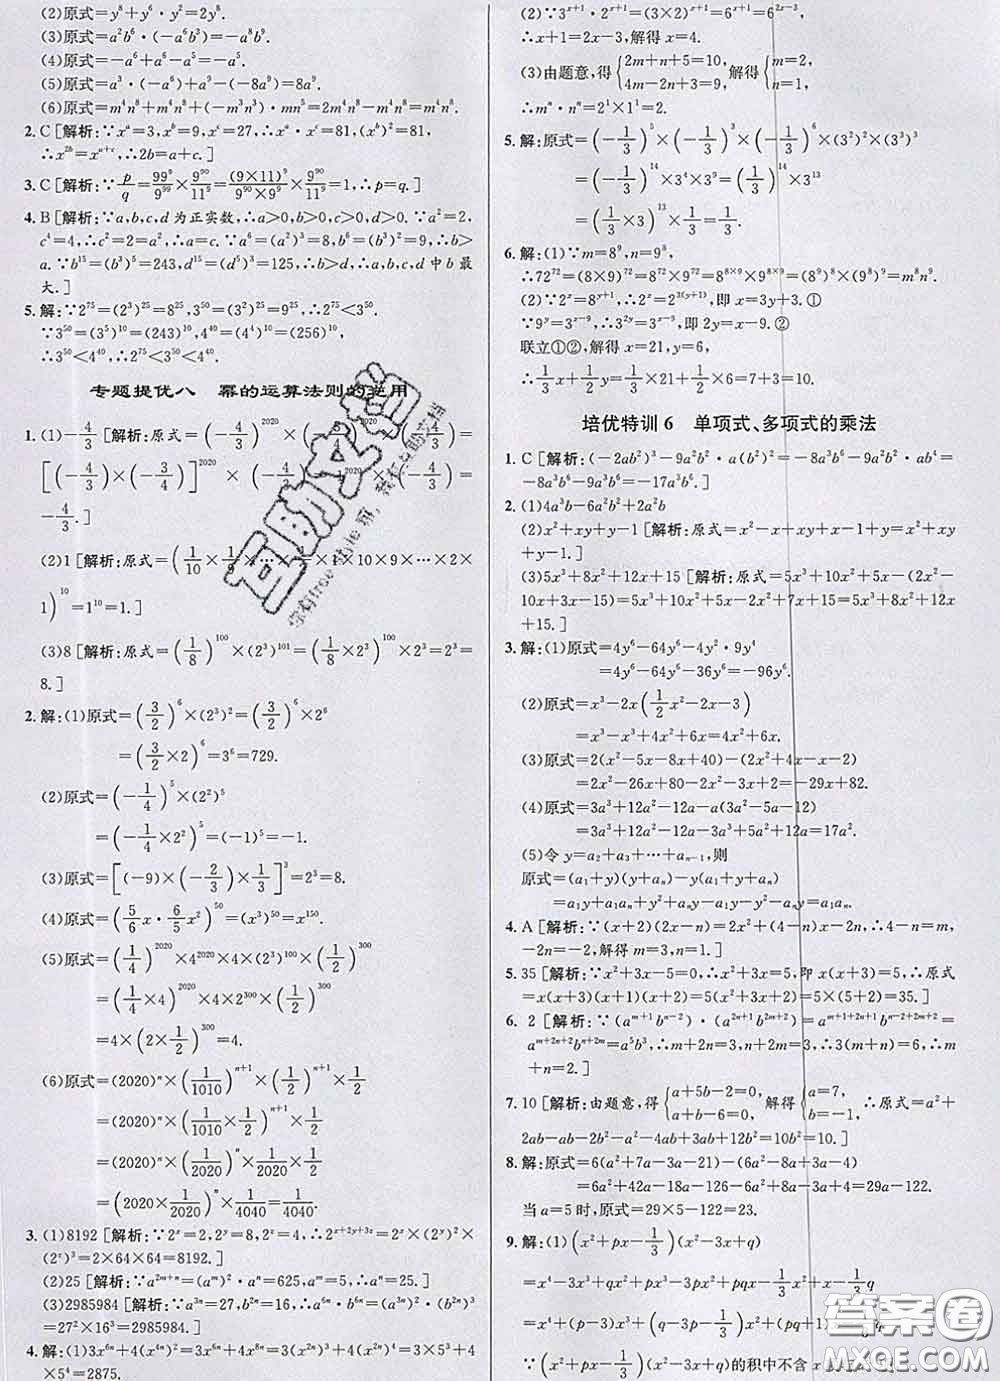 (2)原式=y⁸+y⁶·y²=2y⁸.
(3)原式=a²b⁶·(-a⁶b³)=-a⁸b⁹.
(4)原式=-a⁶+a⁶-a⁵=-a⁵.
(5)原式=a³·(-a⁶)+a⁹-(-8a⁹)=8a⁹.
(6)原式=m⁴n⁸+m⁴n⁸+(-m³n³)·mn⁵=2m⁴n⁸-m⁴n⁸=m⁴n⁸.
2. C [解析:∵xᵃ=3,xᵇ=9,xᶜ=27,∴xᵃ·xᶜ=81,(xᵇ)²=81,
∴x²ᵇ=xᵃ⁺ᶜ,∴2b=a+c.]
3. C [解析:∵p/q=99⁹/99⁹⁹×9⁹⁰/11⁹=(9×11)⁹/(9⁹⁰×9⁹)×9⁹⁰/11⁹=1,∴p=q.]
4. B [解析:∵a,b,c,d为正实数,∴a>0,b>0,c>0,d>0.∵a²=2,
c⁴=4,∴c²=2=a²,∴a=c.∵a⁶=(a²)³=8,b⁶=(b³)²=9,∴b>
a.∵b¹⁵=(b³)⁵=243,d¹⁵=(d⁵)³=125,∴b>d,∴a,b,c,d中b最
大.]
5. 解:∵2⁷⁵=(2³)²⁵=8²⁵,3⁵⁰=(3²)²⁵=9²⁵,∴2⁷⁵<3⁵⁰.
∵3⁵⁰=(3⁵)¹⁰=(243)¹⁰,4⁴⁰=(4⁴)¹⁰=(256)¹⁰,
∴3⁵⁰<4⁴⁰,∴2⁷⁵<3⁵⁰<4⁴⁰.
专题提优八 幂的运算法则的逆用
1. (1)-4/3 [解析:原式=(-4/3)²⁰²⁰×
[(-3/4)×(-4/3)]²⁰²⁰×(-4/3)=1×(-4/3)=
-4/3.]
(2)1 [解析:原式=(1/10×1/9×…×1×10×9×…×2×
1)¹⁰=1¹⁰=1.]
(3)8 [解析:原式=(1/8)¹⁰⁰×(2³)¹⁰¹=(1/8×2³)¹⁰⁰×2³=2³=
8.]
2. 解:(1)原式=(3/2)⁶×(2³)²=(3/2)⁶×2⁶
=(3/2×2)⁶=3⁶=729.
(2)原式=(-1/4)⁵×(2²)⁵
=(-1/4×2²)⁵=(-1)⁵=-1.
(3)原式=[(-9)×(-2/3)×1/3]³=2³=8.
(4)原式=(5/6x·6/5x²)⁵⁰=(x³)⁵⁰=x¹⁵⁰.
(5)原式=(1/4)²⁰²⁰×4²⁰²⁰×4×(2³)¹⁰⁰×(1/2)³⁰⁰
=(1/4×4)²⁰²⁰×4×2³⁰⁰×(1/2)³⁰⁰
=4×(2×1/2)³⁰⁰=4.
(6)原式=(2020)ⁿ×(1/1010)ⁿ⁺¹×(1/2)ⁿ⁺¹×1/2
=(2020)ⁿ×(1/1010×1/2)ⁿ⁺¹×1/2
=(2020)ⁿ×(1/2020)ⁿ×1/2020×1/2
=(2020×1/2020)ⁿ×1/4040=1/4040.
3. (1)8192 [解析:∵2ˣ=2,2ʸ=8,2ᶻ=4,∴2ˣ⁺²ʸ⁺³ᶻ=2ˣ×(2ʸ)²×
(2ᶻ)³=2×64×64=8192.]
(2)25 [解析:∵a²ᵐ⁺ⁿ=(aᵐ)²·aⁿ=625,aᵐ=5,∴aⁿ=25.]
(3)2985984 [解析:∵a³ⁿ=27,b²ⁿ=16,∴a⁶ⁿ·b⁶ⁿ=(a³ⁿ)²·(b²ⁿ)³
=27²×16³=2985984.]
4. 解:(1)3x⁶ⁿ+4(x⁴ⁿ)²=3x⁶ⁿ+4x⁸ⁿ=3(x²ⁿ)³+4(x²ⁿ)⁴=3×5³+4
×5⁴=2875.
(2)∵3ˣ⁺¹·2ˣ⁺¹=(3×2)ˣ⁺¹=6ˣ⁺¹=6²ˣ⁻³,
∴x+1=2x-3,解得x=4.
(3)由题意,得{2m+n+5=10, 4m-2n+9=3, 解得{m=2, n=1,
∴mⁿ·n²=2¹×1²=2.
5. 解:原式=(-1/3)⁵×(-1/3)³×(-1/3)⁶×(3²)²×(3³)³
=(-1/3)¹⁴×3⁴×3⁹=(1/3)¹⁴×3¹³
=(1/3×3)¹³×1/3=1/3.
6. 解:(1)∵m=8⁹,n=9⁸,
∴72⁷²=(8×9)⁷²=8⁷²×9⁷²=8⁸ˣ⁹×9⁸ˣ⁹=(8⁹)⁸×(9⁸)⁹=m⁸n⁹.
(2)∵2ˣ=8ʸ⁺¹,∴2ˣ=2³⁽ʸ⁺¹⁾,即x=3y+3.①
∵9ʸ=3ˣ⁻⁹,∴3²ʸ=3ˣ⁻⁹,即2y=x-9.②
联立①②,解得x=21,y=6,
∴1/3x+1/2y=1/3×21+1/2×6=7+3=10.
培优特训6 单项式、多项式的乘法
1. C [解析:(-2ab²)³-9a²b²·a(b²)²=-8a³b⁶-9a²b²·ab⁴=
-8a³b⁶-9a³b⁶=-17a³b⁶.]
2. (1)4a³b-6a²b²+2a²b
(2)x²+xy+y-1 [解析:原式=x²-x+xy+x-1+y=x²+xy
+y-1.]
(3)5x³+8x²+12x+15 [解析:原式=5x³+10x²+5x-(2x²-
10x+3x-15)=5x³+10x²+5x-2x²+7x+15=5x³+8x²+12x
+15.]
3. 解:(1)原式=4y⁶-64y⁶-4y²·9y⁴
=4y⁶-64y⁶-36y⁶=-96y⁶.
(2)原式=x³-2x(1/2x²-2x-3)
=x³-x³+4x²+6x=4x²+6x.
(3)原式=2(x²-5x-8x+40)-(2x²+4x-x-2)
=2x²-26x+80-2x²-3x+2=-29x+82.
(4)原式=3a³+12a²-12a-a(3a²-5a-12)
=3a³+12a²-12a-3a³+5a²+12a=17a².
(5)令y=a₂+a₃+…+aₙ₋₁,则
原式=(a₁+y)(y+aₙ)-y(a₁+y+aₙ)
=a₁y+a₁aₙ+y²+aₙy-a₁y-y²-aₙy=a₁aₙ.
4. A [解析:∵(x+2)(2x-n)=2x²+(4-n)x-2n,∴4-n=m,
-2n=-2,解得m=3,n=1.]
5. 35 [解析:∵x²+3x-5=0,∴x²+3x=5,即x(x+3)=5,∴原式
=x(x+3)(x+1)(x+2)=5(x²+3x+2)=5×(5+2)=35.]
6. 2 [解析:∵(aᵐ⁺¹bⁿ⁻²)·(a²ⁿ⁺¹b²ᵐ⁺²)=aᵐ⁺¹⁺²ⁿ⁺¹bⁿ⁻²⁺²ᵐ⁺²=
aᵐ⁺²ⁿ⁺²bⁿ⁺²ᵐ=a⁵b³,∴m+2n=3,n+2m=3,∴3(m+n)=6,∴m
+n=2.]
7. 10 [解析:由题意,得{a+5b-2=0, a-b-6-2=0, 解得{a=7, b=-1, ∴原式=a²+
2ab-ab-2b²-a²-4ab+3ab+12b²=10b²=10.]
8. 解:原式=6(a²+7a-3a-21)-(6a²-8a+3a-4)
=6a²+42a-18a-126-6a²+8a-3a+4=29a-122.
当a=5时,原式=29×5-122=23.
9. 解:(1)(x²+px-1/3)(x²-3x+q)
=x⁴-3x³+qx²+px³-3px²+pqx-1/3x²+x-1/3q
=x⁴+(p-3)x³+
∵(x²+px-1/3)(x²-3x+q)的积中不含
互助文档
答案圈
MXQE.COM